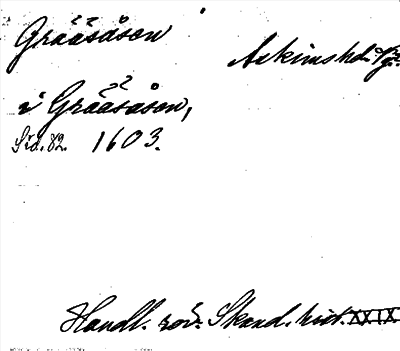 Gråäsåsen
Askims hd.
i Gråäsåsen,
Sid. 82. 1603.
Handl. rör. Skand. hist. XXIX